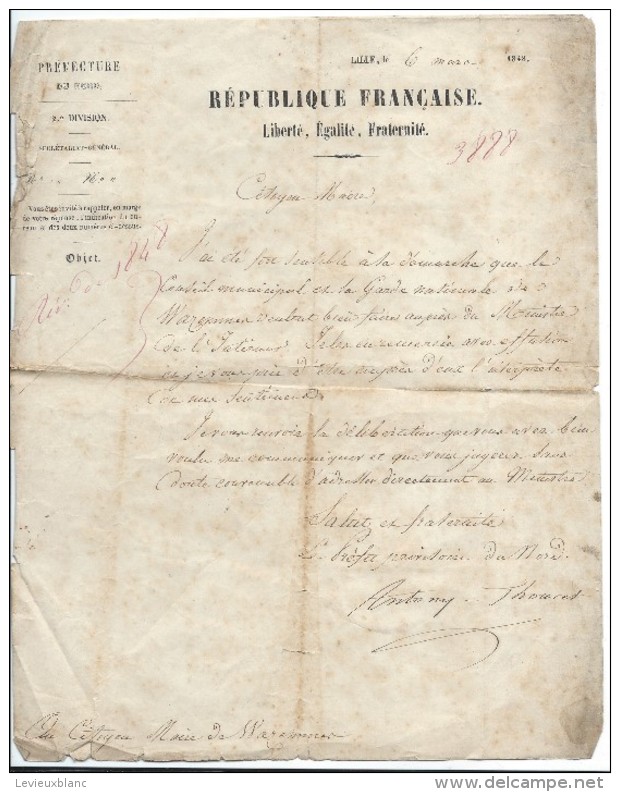 PRÉFECTURE
DU NORD.
2.me DIVISION.
SECRÉTARIAT-GÉNÉRAL.
Objet.
LILLE, le 6 mars 1848.
RÉPUBLIQUE FRANÇAISE.
Liberté, Égalité, Fraternité.
3888
Citoyen Maire,
J'ai été fort sensible à la démarche que le
Conseil municipal et la Garde nationale de
Wazemmes veulent bien faire auprès du Ministre
de l'Intérieur. Je les en remercie avec effusion
et je vous prie d'être auprès d'eux l'interprète
de mes sentiments.
Je vous renvoie la délibération que vous avez bien
voulu me communiquer et que vous jugerez sans
doute convenable d'adresser directement au Ministre.
Salut et fraternité
Le Préfet provisoire du Nord.
Antony Thouret
Au Citoyen Maire de Wazemmes
Levieuxblanc
www.delcampe.net